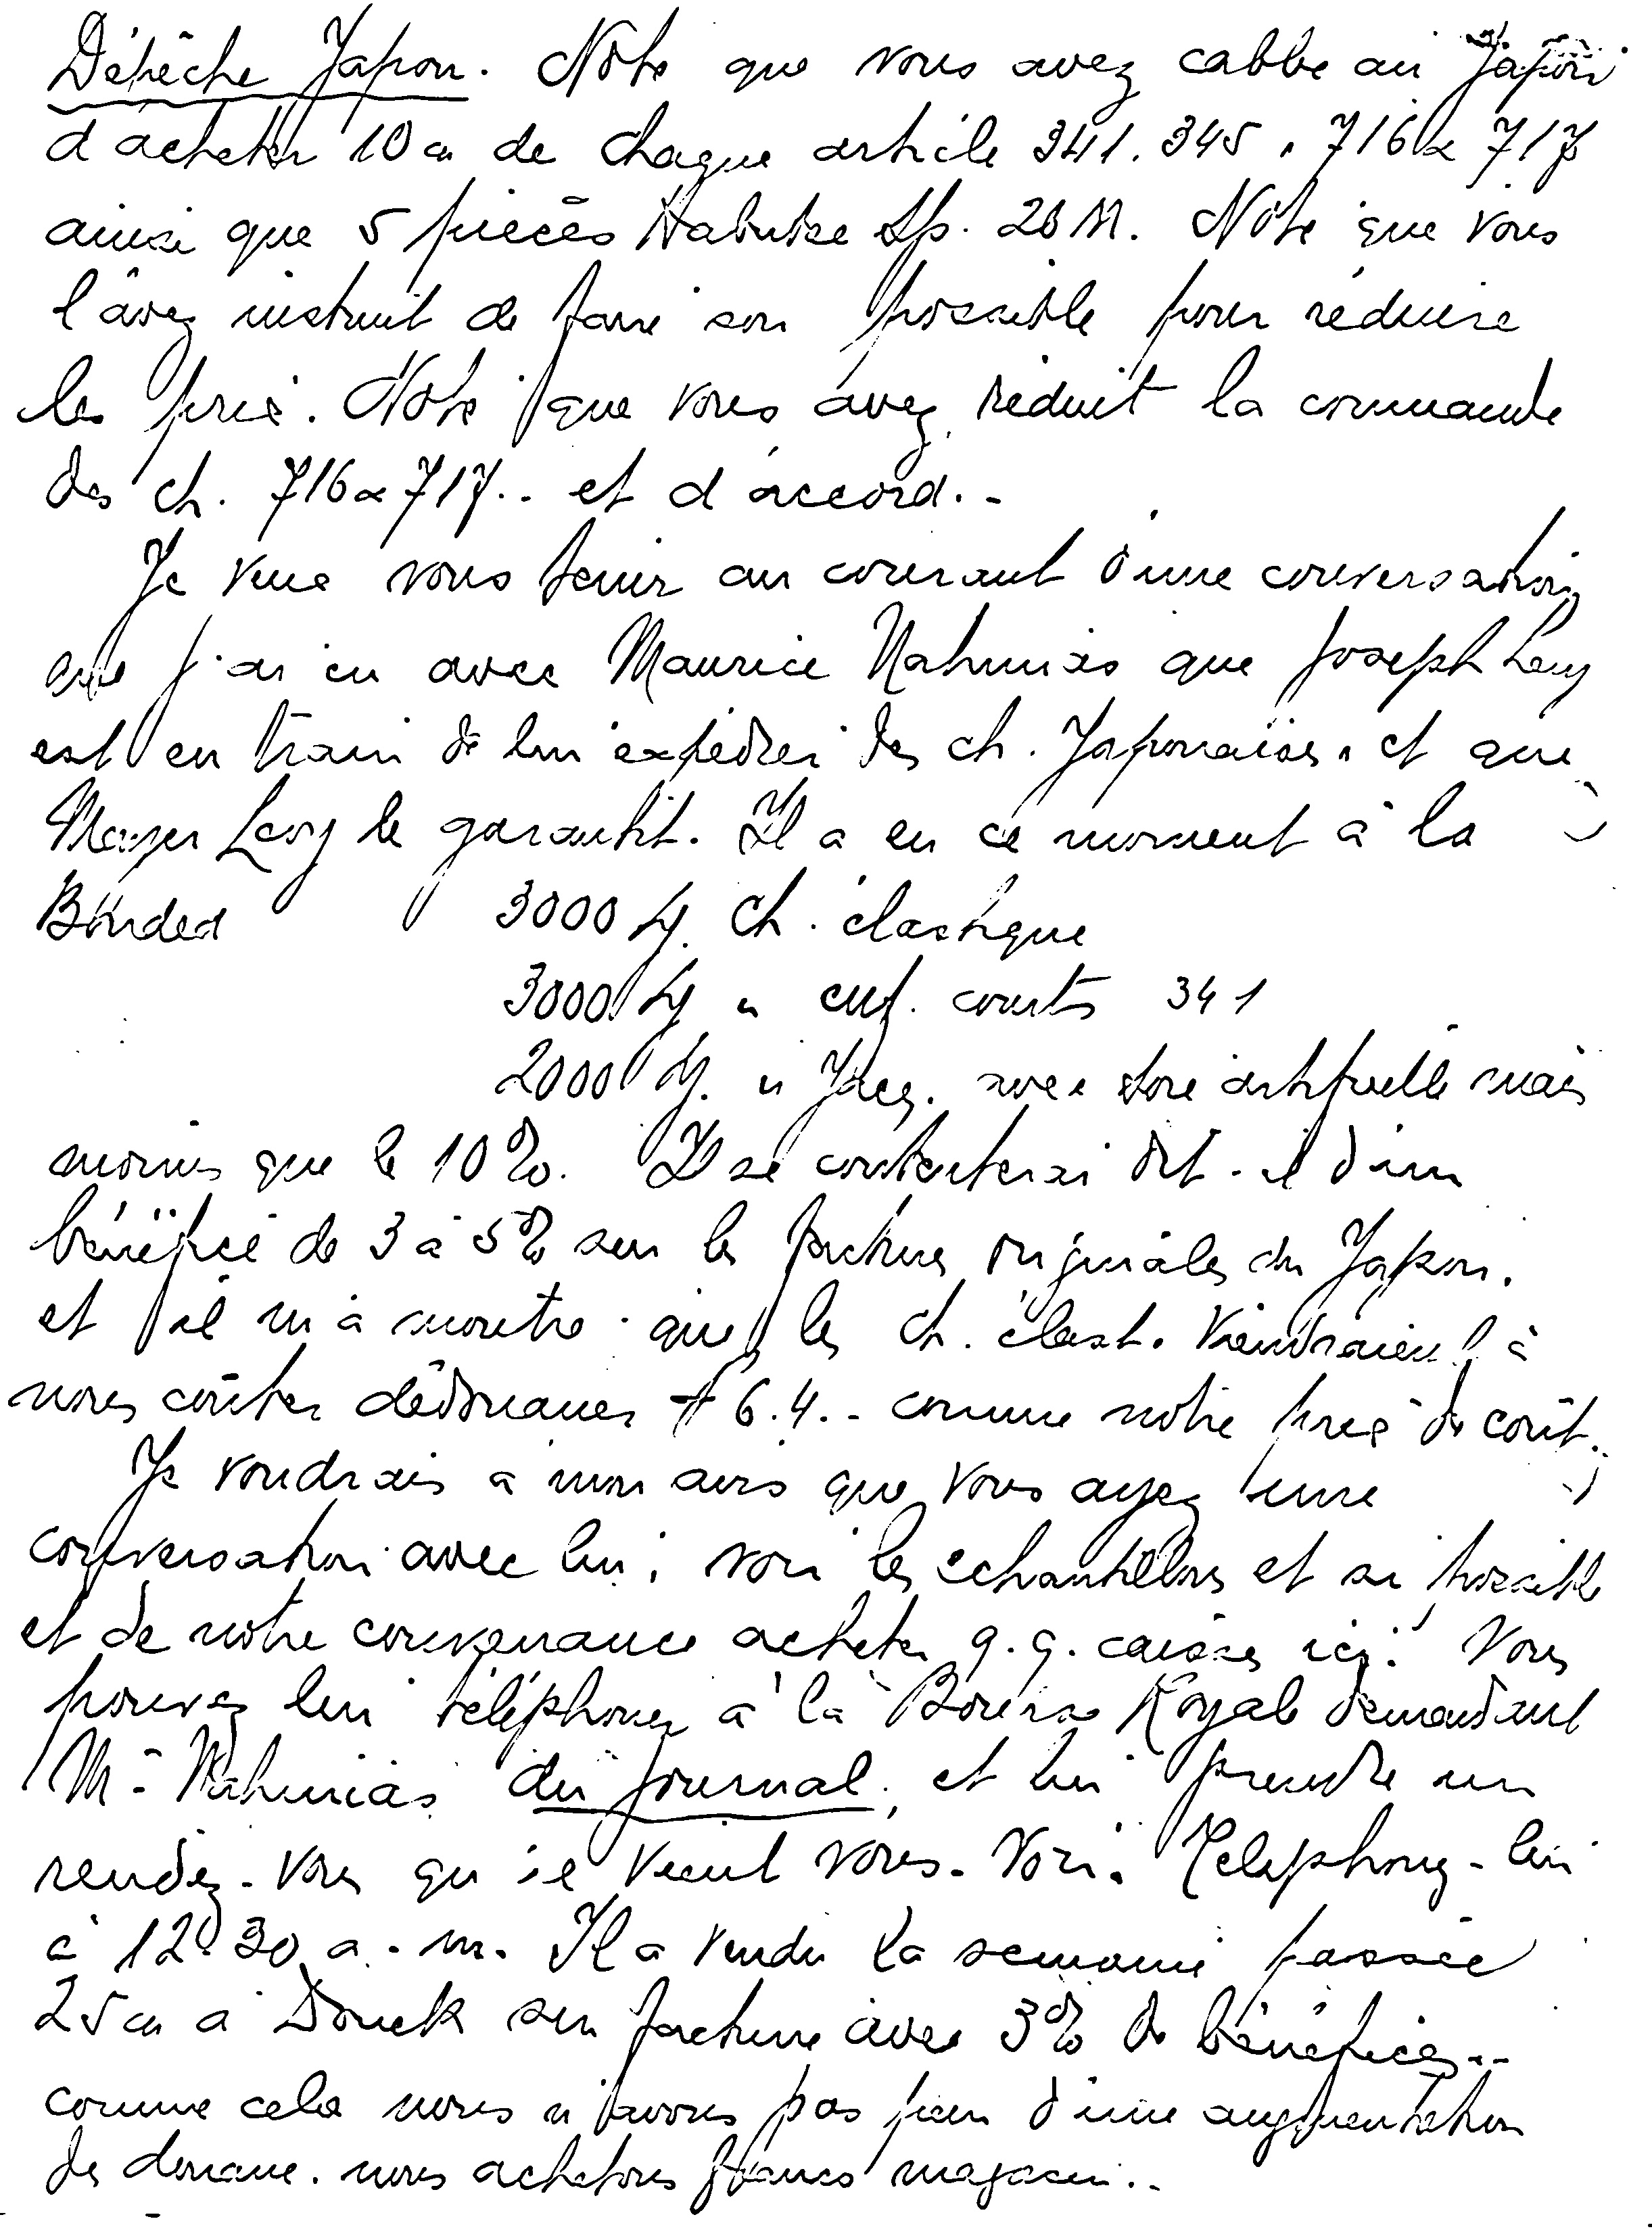 Dépêche Japon. Note que vous avez cablé au Japon
d'acheter 10 cs de chaque article 341. 345. 716 & 717
ainsi que 5 pièces Habutae 20 M. Note que vous
l'avez instruit de faire son possible pour réduire
les prix. Note que vous avez réduit la commande
des ch. 716 & 717.. et d'accord.-
Je veux vous tenir au courant d'une conversation
que j'ai eu avec Maurice Nahmias que Joseph Levy
est en train de lui expédier des ch. Japonaises. et que
Mayer Levy le garantit. Il a en ce moment à la
Bonded 3000 ch. élastique
3000 " courts 341
2000 " Jacq. avec soie artificielle mais
moins que le 10%. Il se contenterai dit-il d'un
bénéfice de 3 à 5% sur les factures originales du Japon.
et il m'a montré que les ch. élast. viendraient à
nous coûter dédouanées 6.4.- comme notre prix de coût.
Je voudrais à mon avis que vous ayez une
conversation avec lui, voir les échantillons et si possible
et de notre convenance acheter q.q. caisses ici. Vous
pouvez lui téléphoner à la Bourse Royale demandant
Mr Nahmias du journal, et lui prendre un
rendez-vous qu'il veut vous-voir. Telephonez-lui
à 12.30 a.m. Il a vendu la semaine passée
25 cs à Douek sur facture avec 3% de bénéfices..
comme cela nous n'avons pas peur d'une augmentation
de douane. nous achetons franco magasin..